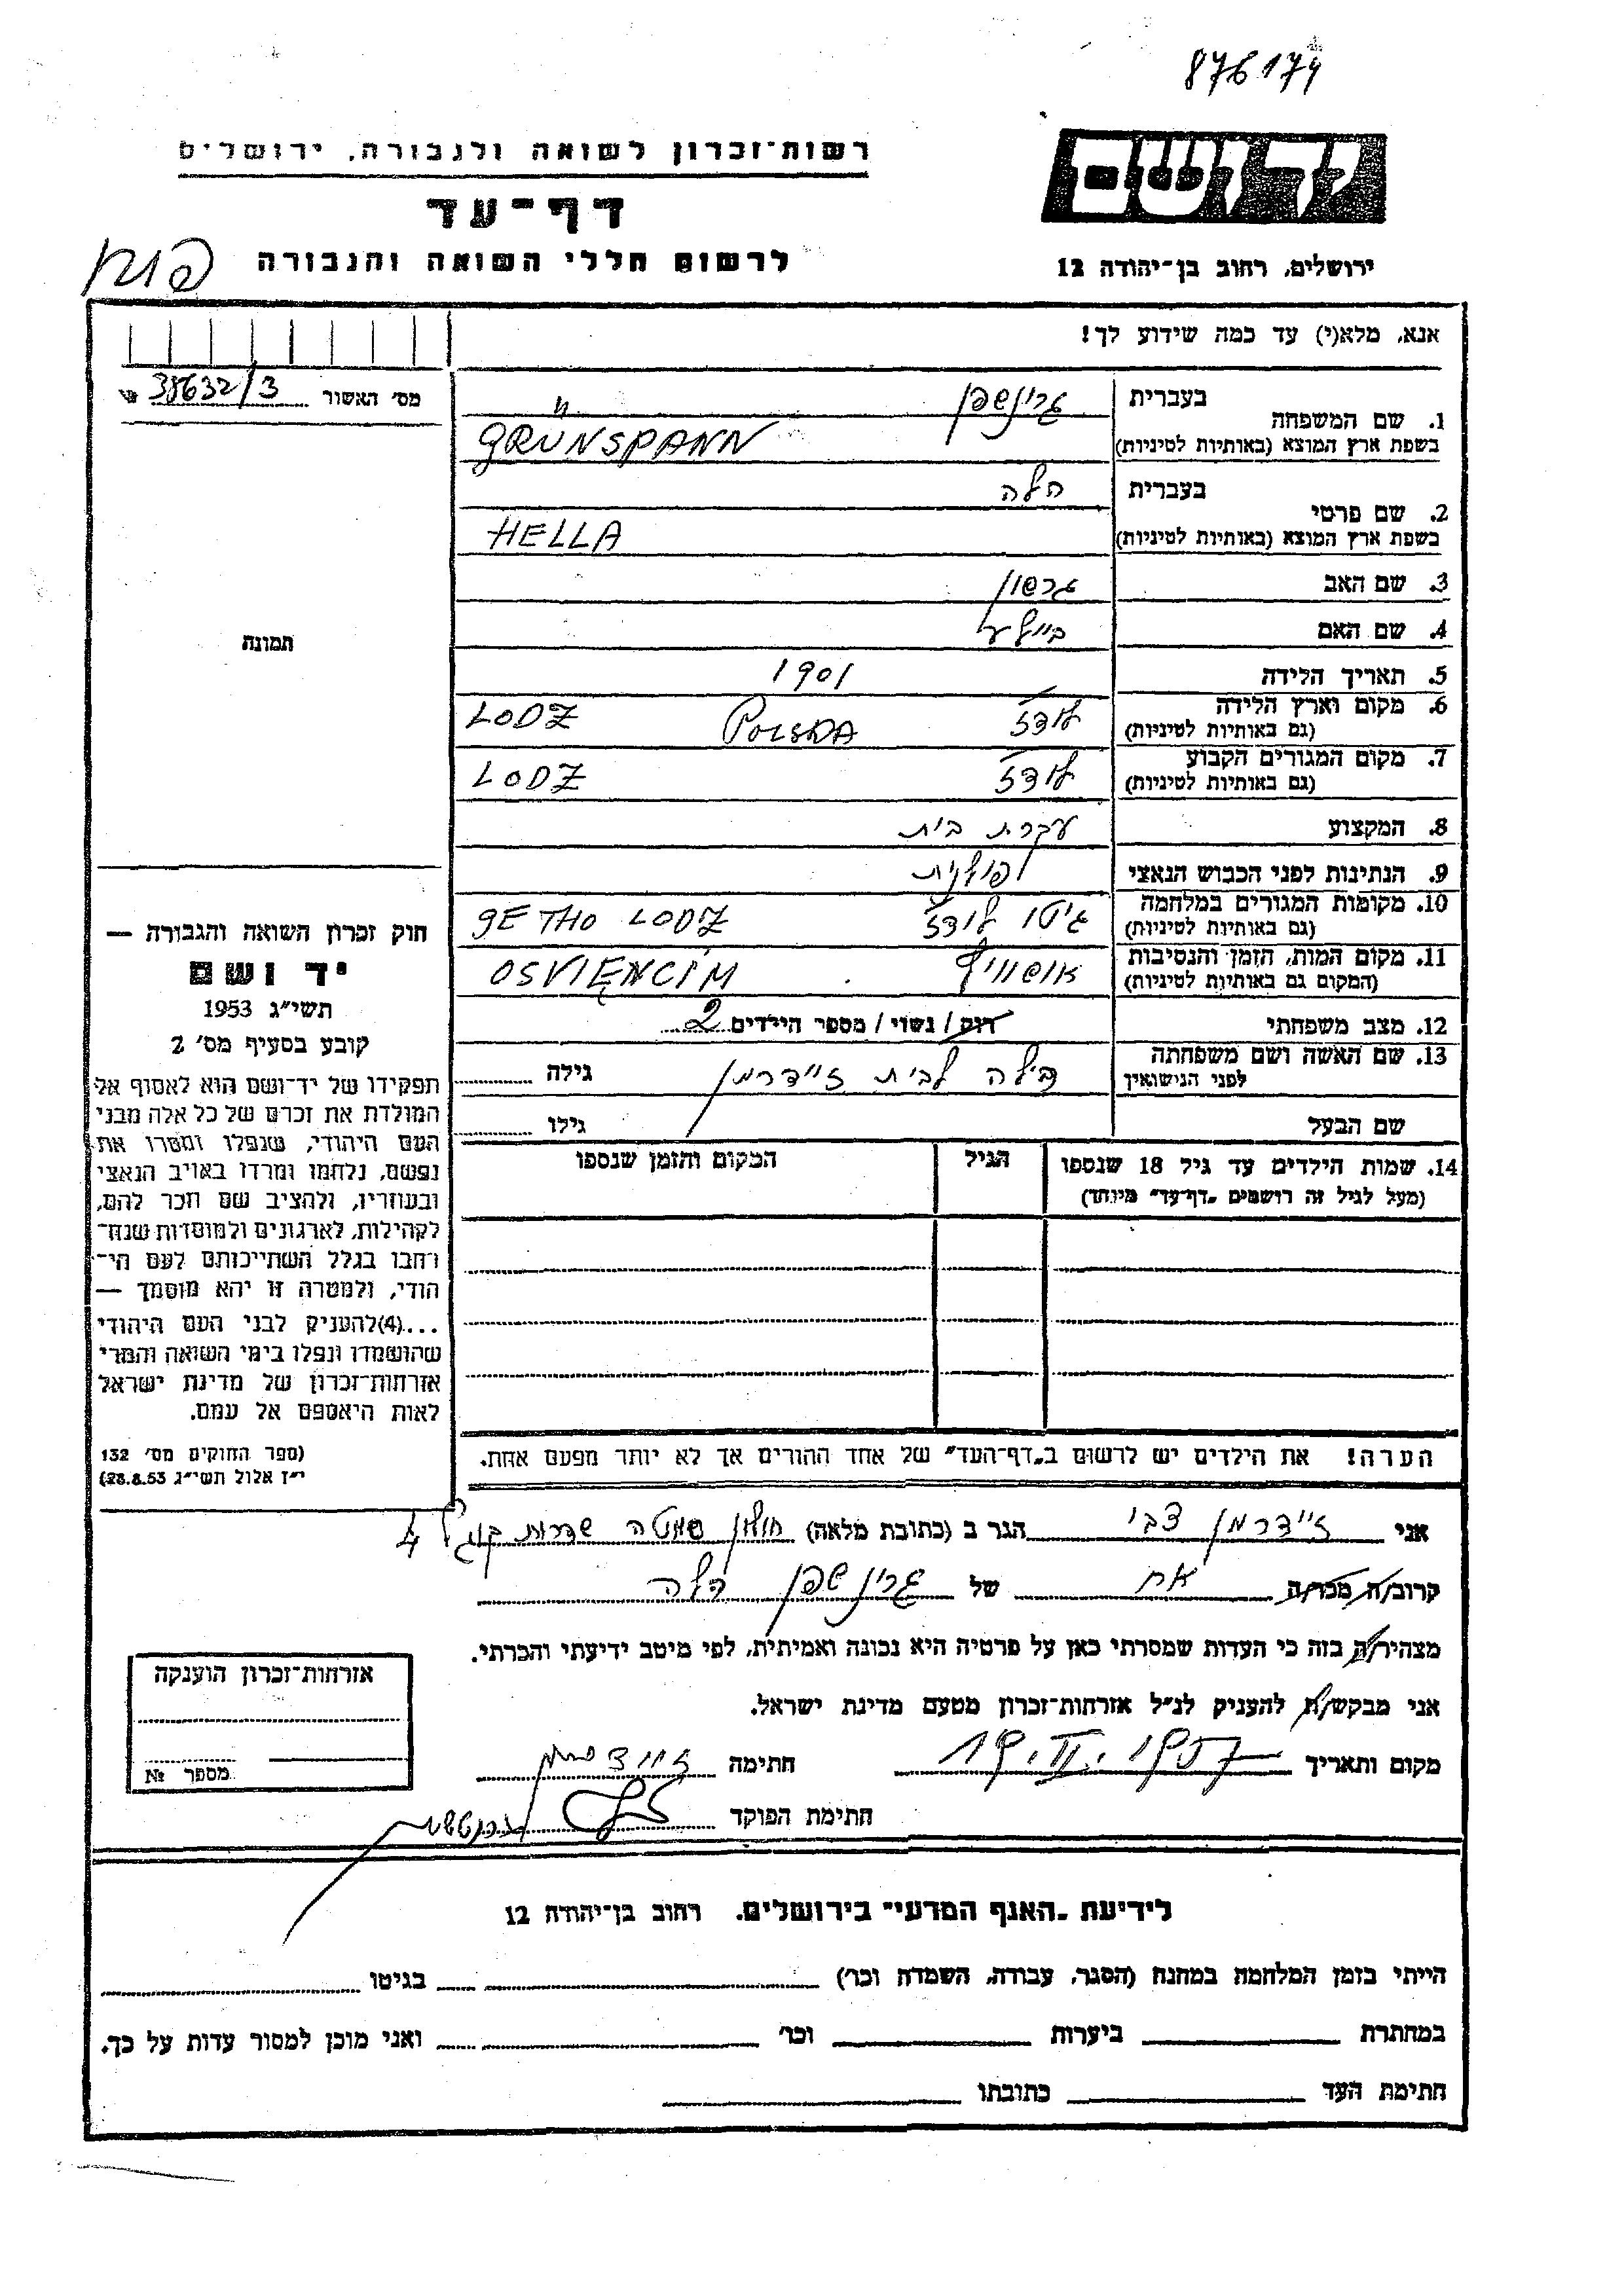 876174
רשות־זכרון לשואה ולגבורה, ירושלים
יד ושם
דף־עד
לרשום חללי השואה והגבורה
ירושלים, רחוב בן־יהודה 12
אנא, מלא(י) עד כמה שידוע לך!
מס׳ האשור 38632/3
1. שם המשפחה
בעברית גרינשפן
בשפת ארץ המוצא (באותיות לטיניות) GRÜNSPANN
2. שם פרטי
בעברית הלה
בשפת ארץ המוצא (באותיות לטיניות) HELLA
3. שם האב גרשון
4. שם האם ביילע
5. תאריך הלידה 1901
6. מקום וארץ הלידה (גם באותיות לטיניות) לודז POLSKA LODZ
7. מקום המגורים הקבוע (גם באותיות לטיניות) לודז LODZ
8. המקצוע עקרת בית
9. הנתינות לפני הכבוש הנאצי פולנית
10. מקומות המגורים במלחמה (גם באותיות לטיניות) גיטו לודז GETHO LODZ
11. מקום המות, הזמן והנסיבות (המקום גם באותיות לטיניות) אושוויץ OSVIENCIM
12. מצב משפחתי רוק / נשוי / מספר הילדים 2
13. שם האשה ושם משפחתה לפני הנישואין הלה לבית זיידרמן גילה
שם הבעל גילו
14. שמות הילדים עד גיל 18 שנספו
(מעל לגיל זה רושמים „דף־עד״ מיוחד)
הגיל
המקום והזמן שנספו
הערה! את הילדים יש לרשום ב„דף־העד״ של אחד ההורים אך לא יותר מפעם אחת.
תמונה
חוק זכרון השואה והגבורה —
יד ושם
תשי״ג 1953
קובע בסעיף מס׳ 2
תפקידו של יד־ושם הוא לאסוף אל
המולדת את זכרם של כל אלה מבני
העם היהודי, שנפלו ומסרו את
נפשם, נלחמו ומרדו באויב הנאצי
ובעוזריו, ולהציב שם וזכר להם,
לקהילות, לארגונים ולמוסדות שנח־
רבו בגלל השתייכותם לעם הי־
הודי, ולמטרה זו יהא מוסמך —
...(4)להעניק לבני העם היהודי
שהושמדו ונפלו בימי השואה והמרי
אזרחות־זכרון של מדינת ישראל
לאות היאספם אל עמם.
(ספר החוקים מס׳ 132
י״ז אלול תשי״ג 28.8.53)
אני זיידרמן צבי הגר ב (כתובת מלאה) חולון שדרות 4
קרוב/ה מכר/ה אח של גרינשפן הלה
מצהיר/ה בזה כי העדות שמסרתי כאן על פרטיה היא נכונה ואמיתית, לפי מיטב ידיעתי והכרתי.
אני מבקש/ת להעניק לנ״ל אזרחות־זכרון מטעם מדינת ישראל.
מקום ותאריך חתימה זיידרמן
חתימת הפוקד
אזרחות־זכרון הוענקה
מספר №
לידיעת „האגף המדעי״ בירושלים, רחוב בן־יהודה 12
הייתי בזמן המלחמה במחנה (הסגר, עבודה, השמדה וכו׳) בגיטו
במחתרת ביערות וכו׳ ואני מוכן למסור עדות על כך.
חתימת העד כתובתו